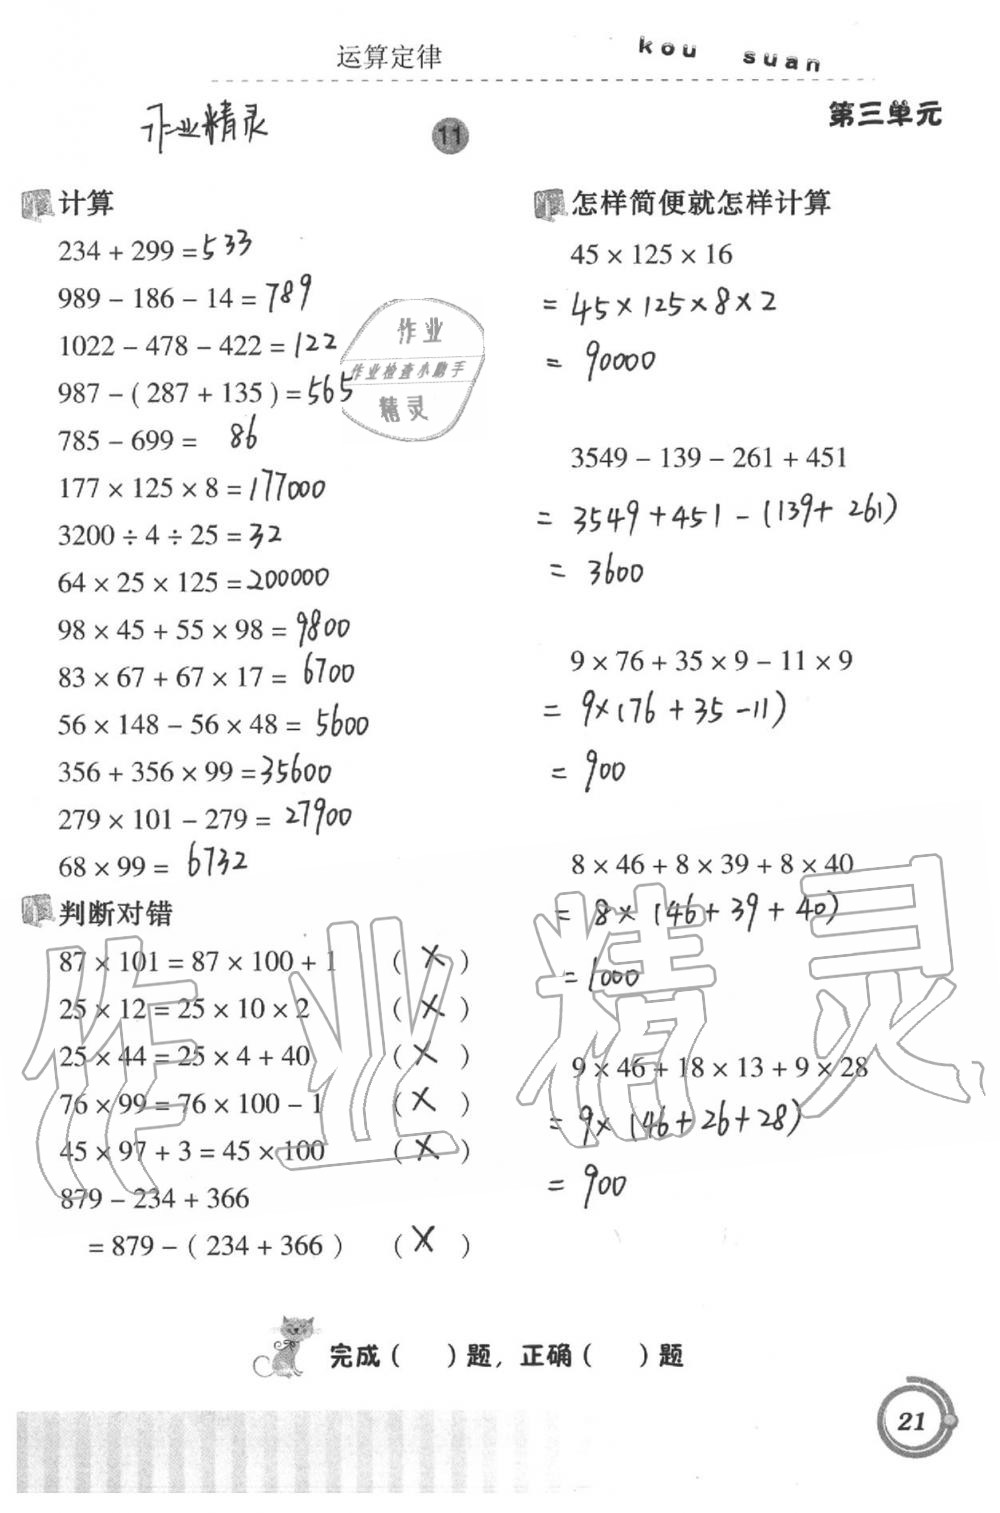 运算定律
kou suan
第三单元
作业精灵
11
计算
234 + 299 = 533
989 - 186 - 14 = 789
1022 - 478 - 422 = 122
987 - ( 287 + 135 ) = 565
785 - 699 = 86
177 × 125 × 8 = 177000
3200 ÷ 4 ÷ 25 = 32
64 × 25 × 125 = 200000
98 × 45 + 55 × 98 = 9800
83 × 67 + 67 × 17 = 6700
56 × 148 - 56 × 48 = 5600
356 + 356 × 99 = 35600
279 × 101 - 279 = 27900
68 × 99 = 6732
判断对错
87 × 101 = 87 × 100 + 1 ( × )
25 × 12 = 25 × 10 × 2 ( × )
25 × 44 = 25 × 4 + 40 ( × )
76 × 99 = 76 × 100 - 1 ( × )
45 × 97 + 3 = 45 × 100 ( × )
879 - 234 + 366
= 879 - ( 234 + 366 ) ( × )
怎样简便就怎样计算
45 × 125 × 16
= 45 × 125 × 8 × 2
= 90000
3549 - 139 - 261 + 451
= 3549 + 451 - (139 + 261)
= 3600
9 × 76 + 35 × 9 - 11 × 9
= 9 × (76 + 35 - 11)
= 900
8 × 46 + 8 × 39 + 8 × 40
= 8 × (46 + 39 + 40)
= 1000
9 × 46 + 18 × 13 + 9 × 28
= 9 × (46 + 26 + 28)
= 900
作业
作业检查小助手
精灵
作业精灵
完成 ( ) 题, 正确 ( ) 题
21